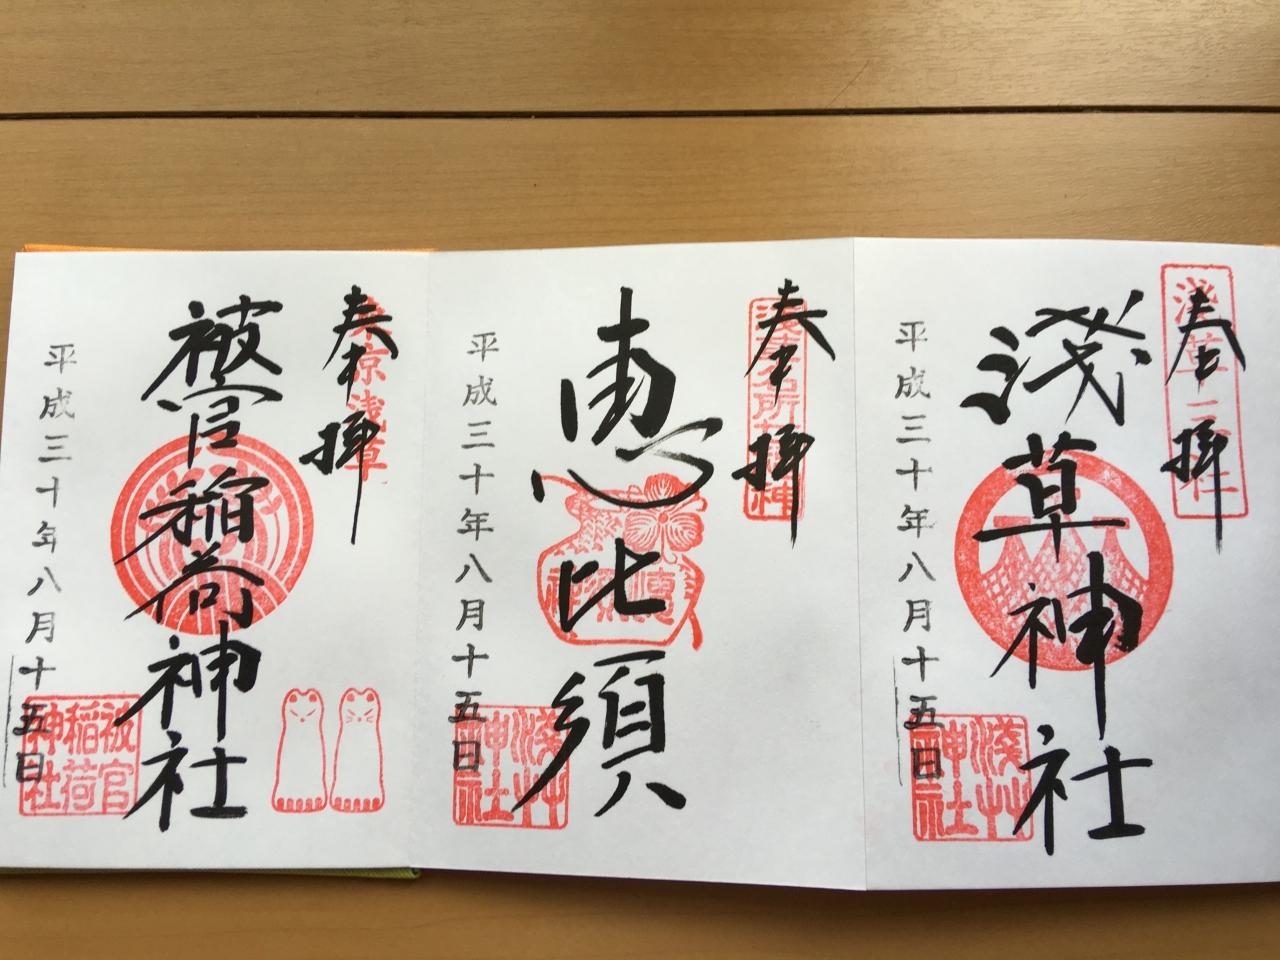 奉拝
淺草三社
淺草神社
平成三十年八月十五日
淺艸
神社
奉拝
浅草名所七福神
恵比須
恵比須神
平成三十年八月十五日
淺艸
神社
奉拝
東京浅草
被官稲荷神社
平成三十年八月十五日
被官
稲荷
神社